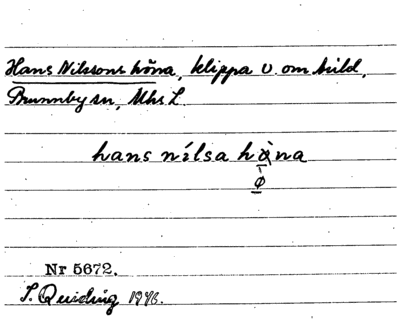 Hans Nilssons höna, klippa v. om huld,
Brunnby sn, Mhs L.
hans nílsa hòna
ø
Nr 5672.
S. Quiding 1946.